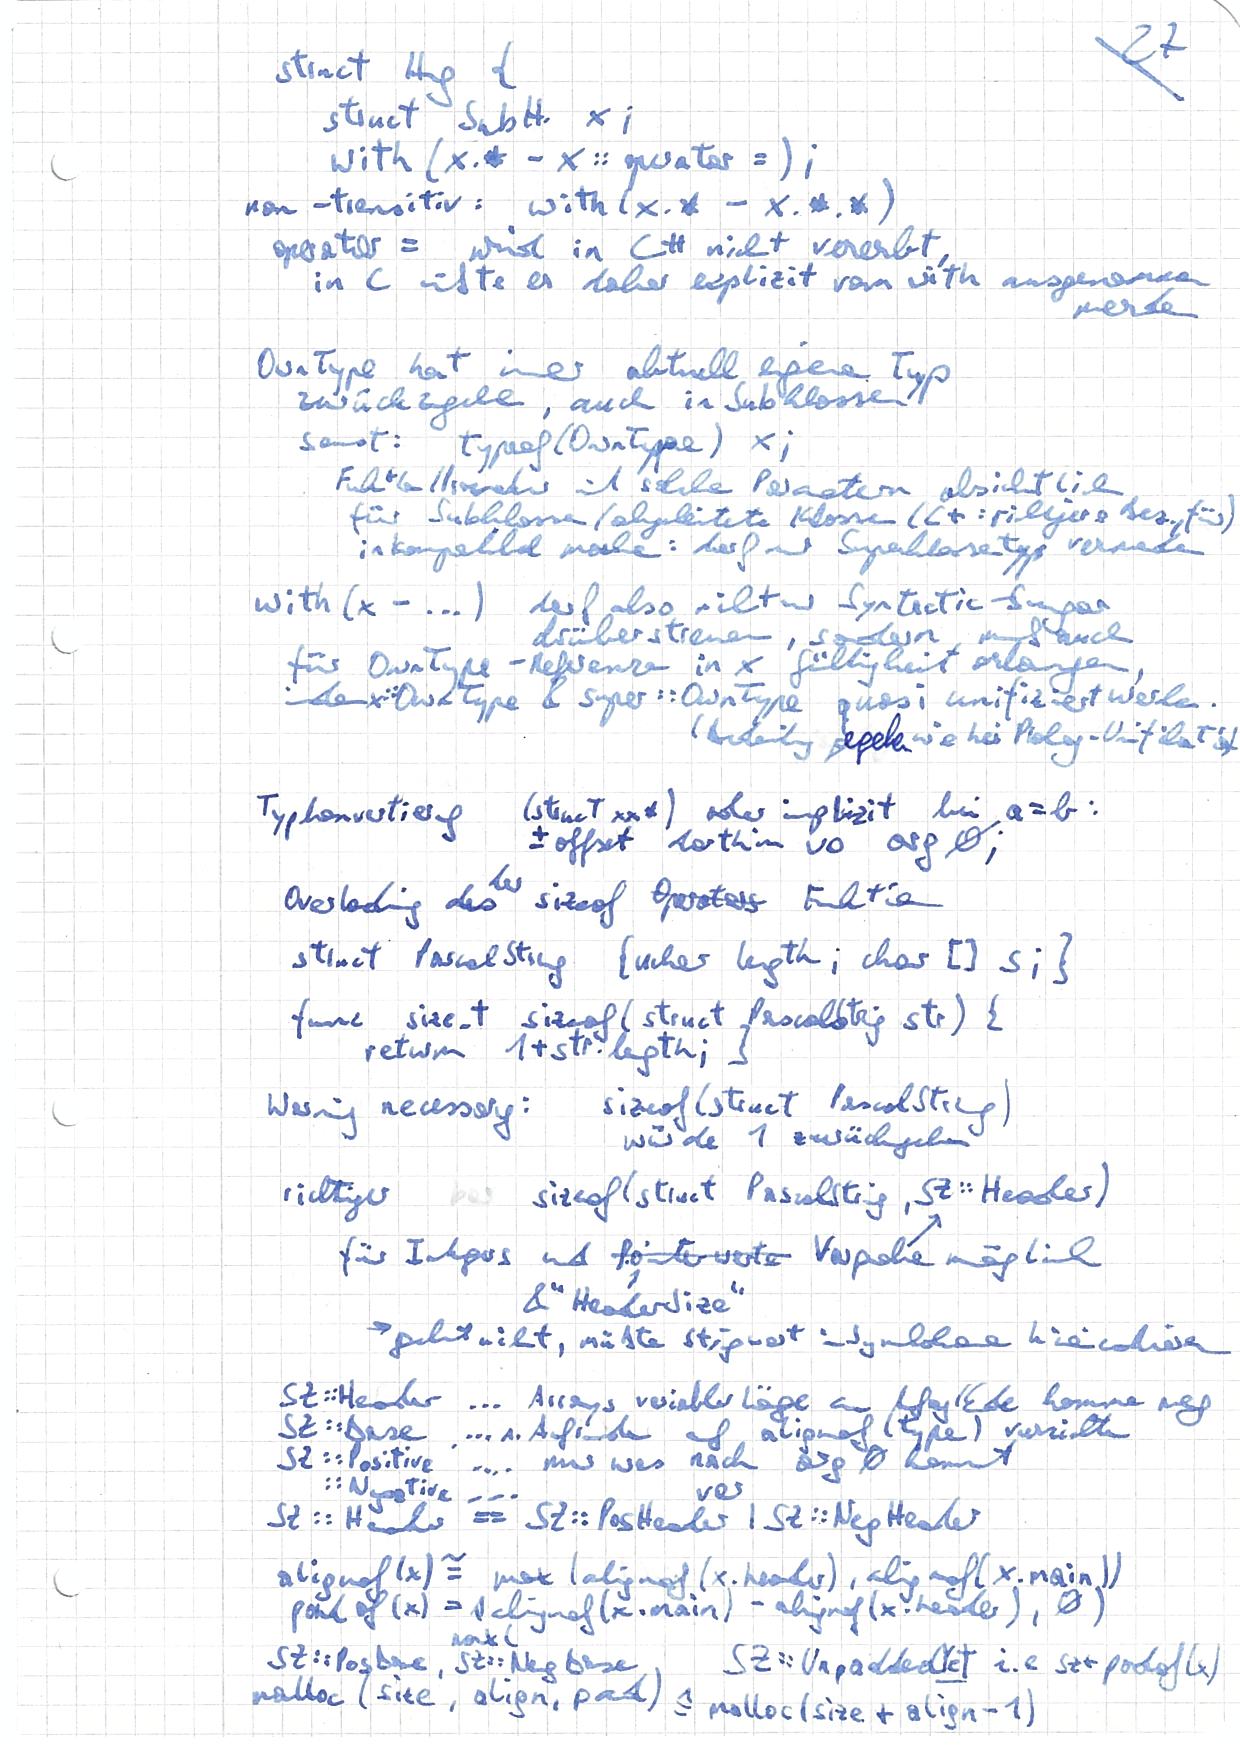 27
struct Hug {
struct SubH. x;
with (x.* - x::operator =);
non-transitiv: with (x.* - x.*.*)
operator = wird in C++ nicht vererbt,
in C müßte er daher explizit vom with ausgenommen
werden
OwnType hat immer aktuell eigenen Typ
zurückzugeben, auch in Subklassen
sonst: typeof(OwnType) x;
mit solchen Parametern absichtlich
für Subklassen/abgeleitete Klassen (C++: für)
inkompatibel machen: darf nur Superklassetyp verwenden
with (x - ...) darf also nicht nur Syntactic-Sugar
drüberstreuen, sondern muß auch
für OwnType-Referenzen in x Gültigkeit erlangen,
indem x::OwnType & super::OwnType quasi unifiziert werden.
(regeln wie bei Prolog-Unifikation
Typkonvertierung (struct xx*) oder implizit bei a=b:
± offset dorthin wo org Ø;
Overloading des der sizeof Operators Funktion
struct PascalString {uchar length; char [] s;}
func size_t sizeof(struct PascalString str) {
return 1+str.length; }
Warning necessary: sizeof(struct PascalString)
würde 1 zurückgeben
richtiger sizeof(struct PascalString, SZ::Header)
für Integers und Pointerwerte Vergabe möglich
& "HeaderSize"
→ geht nicht, müßte in Symbolname
SZ::Header ... Arrays variabler Länge am Anfang/Ende kommen weg
SZ::Base .... auf alignof(type) verzichten
SZ::Positive .... nur was nach org Ø kommt
::Negative .... vor
SZ::Header == SZ::PosHeader | SZ::NegHeader
alignof(x) ≅ max (alignof(x.header), alignof(x.main))
padof(x) = max( alignof(x.main) - alignof(x.header), Ø)
SZ::PosBase, SZ::NegBase SZ::Unpadded i.e sz+padof(x)
malloc (size, align, pad) ≙ malloc(size + align-1)